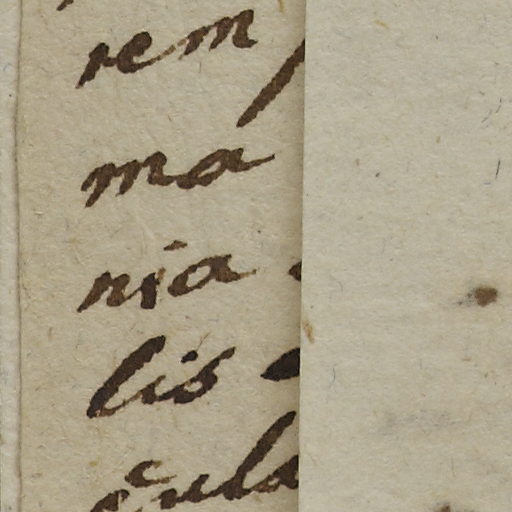 rem
ma
nia
lis